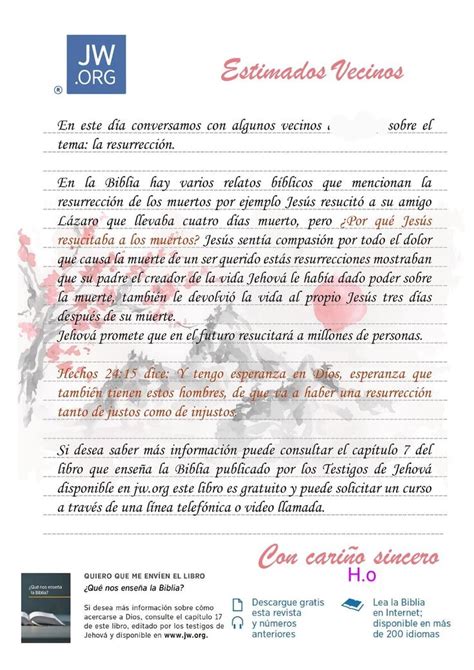 JW
.ORG
®
Estimados Vecinos
En este día conversamos con algunos vecinos sobre el
tema: la resurrección.
En la Biblia hay varios relatos bíblicos que mencionan la
resurrección de los muertos por ejemplo Jesús resucitó a su amigo
Lázaro que llevaba cuatro días muerto, pero ¿Por qué Jesús
resucitaba a los muertos? Jesús sentía compasión por todo el dolor
que causa la muerte de un ser querido estás resurrecciones mostraban
que su padre el creador de la vida Jehová le había dado poder sobre
la muerte, también le devolvió la vida al propio Jesús tres días
después de su muerte.
Jehová promete que en el futuro resucitará a millones de personas.
Hechos 24:15 dice: Y tengo esperanza en Dios, esperanza que
también tienen estos hombres, de que va a haber una resurrección
tanto de justos como de injustos.
Si desea saber más información puede consultar el capítulo 7 del
libro que enseña la Biblia publicado por los Testigos de Jehová
disponible en jw.org este libro es gratuito y puede solicitar un curso
a través de una línea telefónica o video llamada.
Con cariño sincero
H.o
¿Qué nos enseña
la Biblia?
QUIERO QUE ME ENVÍEN EL LIBRO
¿Qué nos enseña la Biblia?
Si desea más información sobre cómo
acercarse a Dios, consulte el capítulo 17
de este libro, editado por los testigos de
Jehová y disponible en www.jw.org.
Descargue gratis
esta revista
y números
anteriores
Lea la Biblia
en Internet;
disponible en más
de 200 idiomas